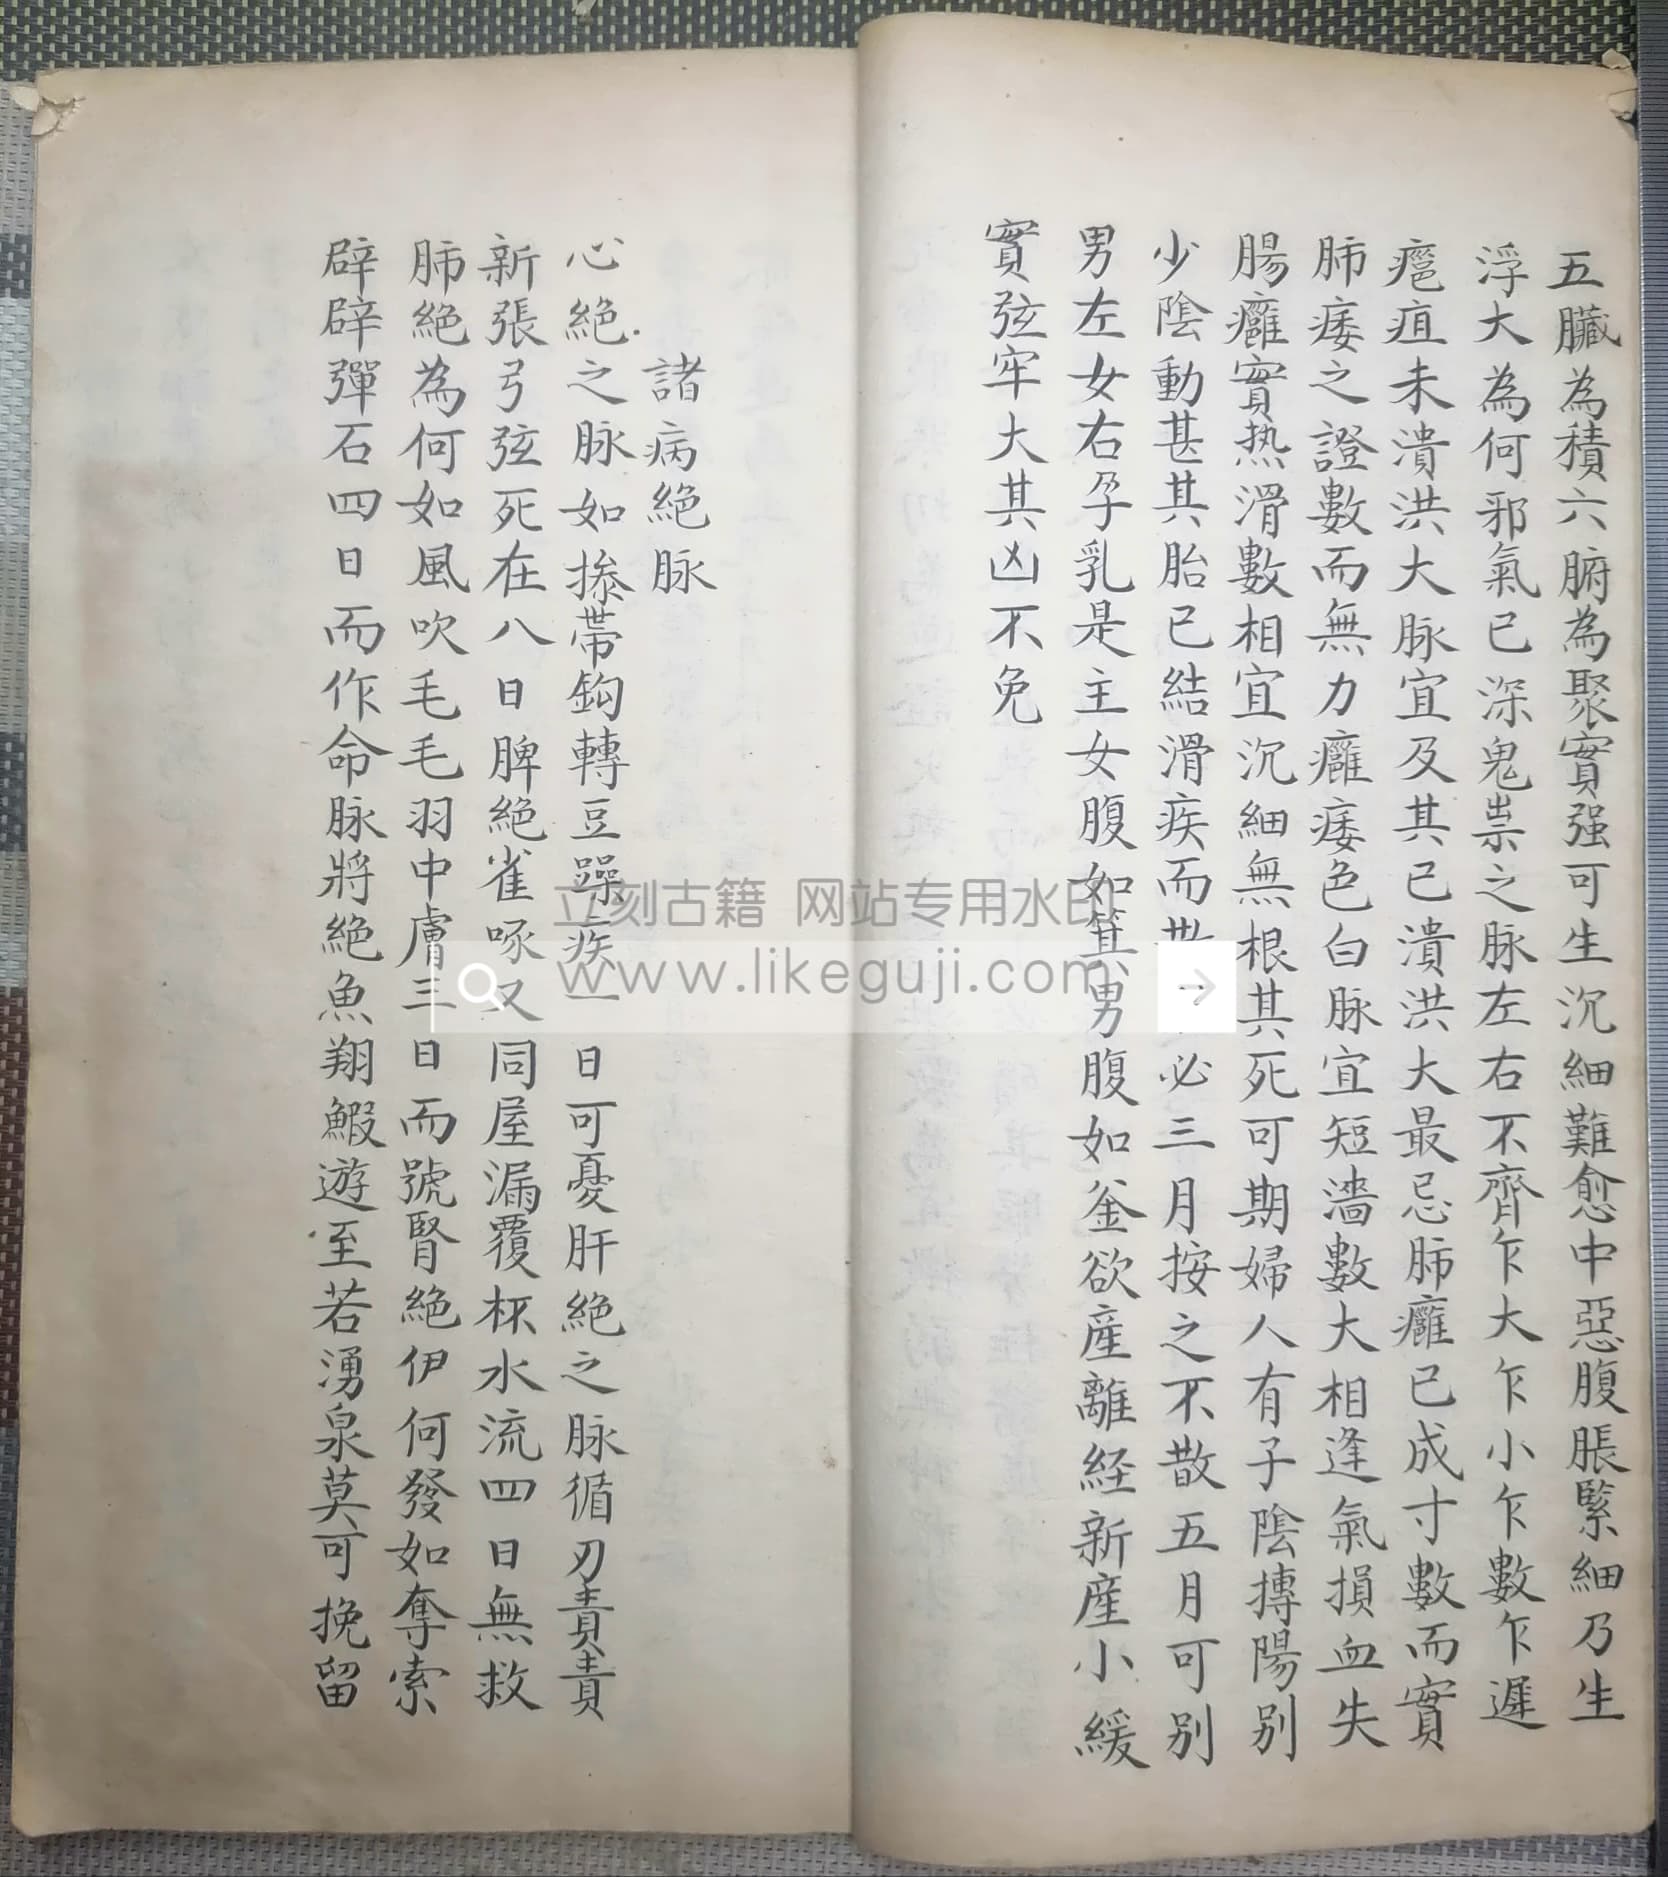 五臟為積六腑為聚實强可生沉細難愈中惡腹脹緊細乃生
浮大為何邪氣已深鬼祟之脉左右不齊乍大乍小乍數乍遲
疽未潰洪大脉宜及其已潰洪大最忌肺癰已成寸數而實
肺痿之證數而無力癰痿色白脉宜短濇數大相逢氣損血失
腸癰實热滑數相宜沉細無根其死可期婦人有子陰搏陽别
少陰動甚其胎已結滑疾而散必三月按之不散五月可别
男左女右孕乳是主女腹如箕男腹如釜欲産離経新産小緩
實弦牢大其凶不免
諸病絶脉
心絶之脉如掺帶鈎轉豆躁疾一日可憂肝絶之脉循刃責責
新張弓弦死在八日脾絶雀啄又同屋漏覆杯水流四日無救
肺絶為何如風吹毛毛羽中膚三日而號腎絶伊何發如奪索
辟辟彈石四日而作命脉將絶魚翔鰕遊至若湧泉莫可挽留
立刻古籍 网站专用水印
www.likeguji.com